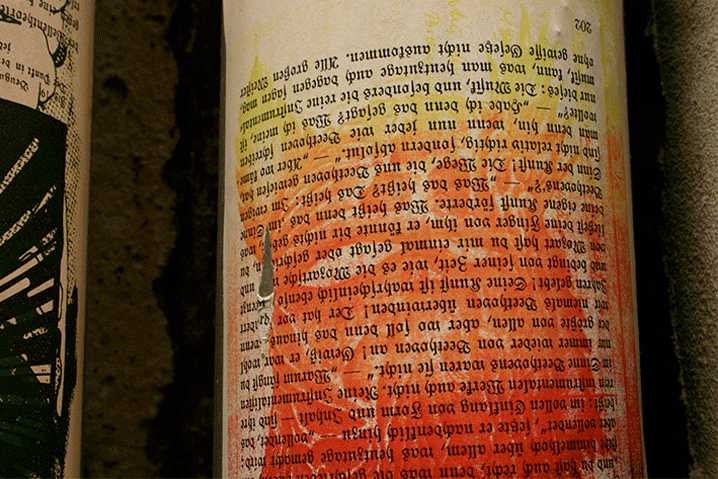 und du hast auch recht, denn was die
himmelhoch über allem, was heutzutage gemacht wird;
aber „vollendet," setzte er nachdenklich hinzu, „vollendet, das
heißt: im vollen Einklang von Form und Inhalt — sind ihre
rein instrumentalen Werke auch nicht. Reine Instrumentalisten
im Sinne Beethovens waren sie nicht." — „Warum fängst du
nur immer wieder von Beethoven an! Gewiß, er war wohl
der größte von allen, aber wo soll denn das hinaus, wenn
wir niemals Beethoven überwinden! Der hat vor hundert
Jahren gelebt! Seine Kunst ist wahrscheinlich ebenso
und bedingt von seiner Zeit, wie es die Mozartsche
von Mozart hast du mir einmal gesagt oder geschrieben, du
ließest deine Finger von ihm, er könnte dir nichts geben, was
deine eigene Kunst förderte. Was heißt denn das: im Sinne
Beethovens?" — „Was das heißt? Das heißt: Im ewigen
Sinn der Kunst! Die Wege, die uns Beethoven gewiesen hat,
sind nicht relativ richtig, sondern absolut." — „Aber wo käme
man denn hin, wenn nun jeder wie Beethoven schreiben
wollte?" — „Habe ich denn das gesagt? Was ich meine, ist
nur dieses: Die Musik, und besonders die reine Instrumental-
musik, kann, was man heutzutage auch dagegen sagen mag,
ohne gewisse Gesetze nicht auskommen. Alle großen Meister
202